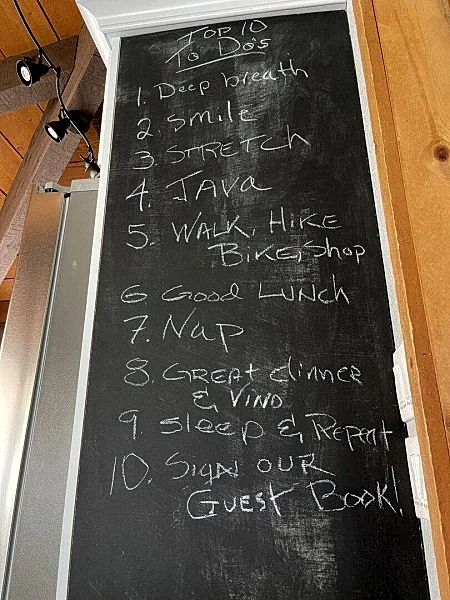 Top 10
To Do's
1. Deep breath
2. Smile
3. STRETCH
4. JAVA
5. WALK, HIKE
BIKE, Shop
6 Good LUNCH
7. Nap
8. GREAT dinner
& VINO
9. Sleep & Repeat
10. SIGN OUR
GUEST BOOK!